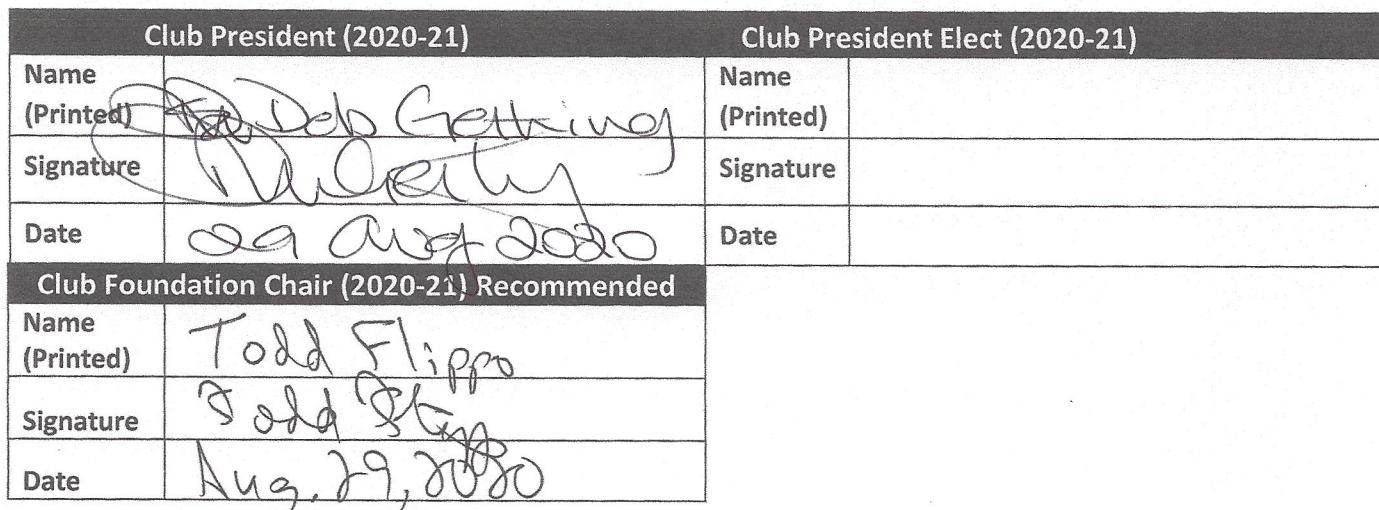 Club President (2020-21)
Name (Printed) Deb Getting
Signature
Date 29 Aug 2020
Club President Elect (2020-21)
Name (Printed)
Signature
Date
Club Foundation Chair (2020-21) Recommended
Name (Printed) Todd Flippo
Signature Todd Flippo
Date Aug. 29, 2020